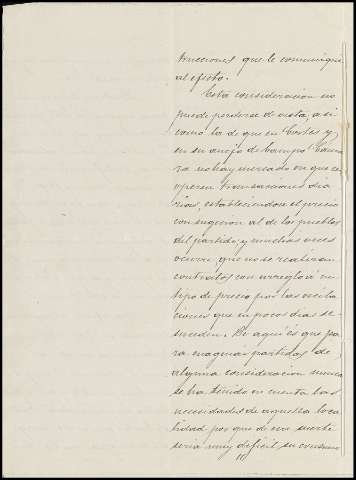 trucciones que le comunique
al efecto.
Esta consideración no
puede perderse de vista, asi
como la de que en Cortes y
en su anejo de Campo Cáma
ra no hay mercado en que se
operen transaciones dia
rias, estableciendose el precio
con sugecion al de los pueblos
del partido, y muchas veces
ocurre, que no se realizan
contratos con arreglo á un
tipo de precio por las oscila
ciones que en pocos dias se
suceden. De aqui es que pa
ra enagenar partidas de
alguna consideracion nunca
se ha tenido en cuenta las
necesidades de aquella loca
lidad por que de esa suerte
seria muy dificil, su consumo